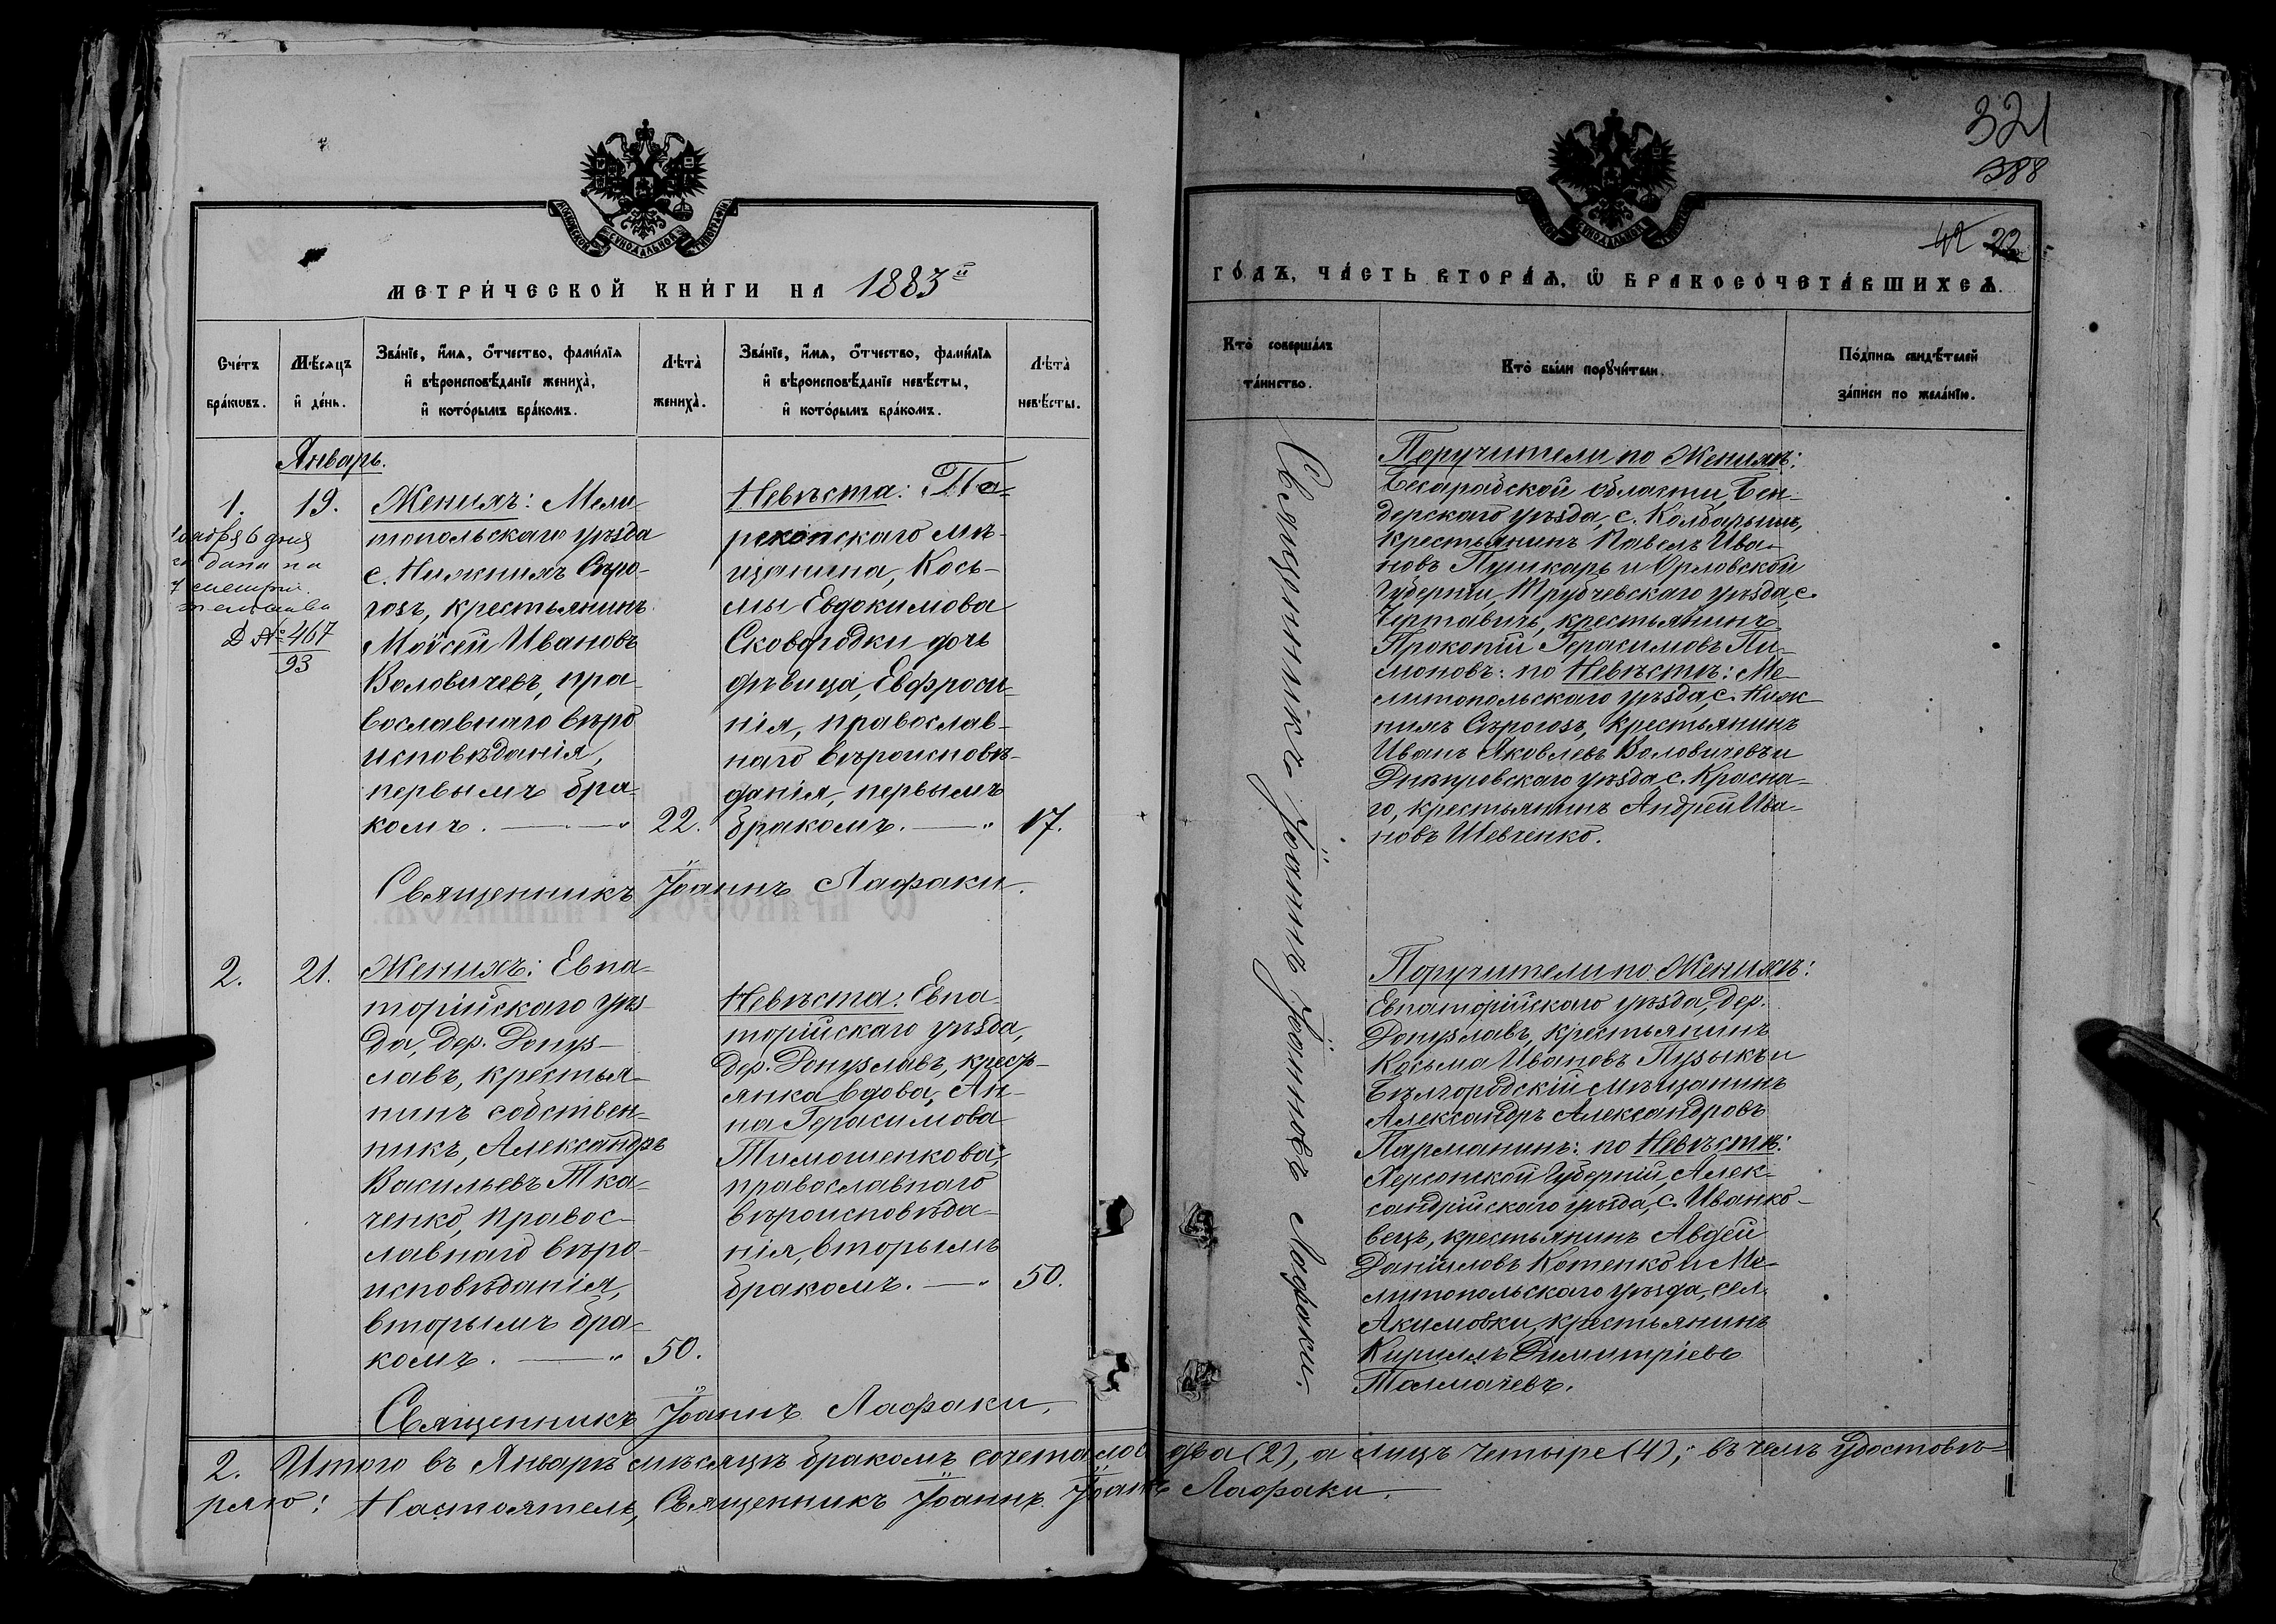 МОСКОВСКОЙ СѴНОДАЛЬНОЙ ТИПОГРАФІИ
МЕТРИ́ЧЕСКОЙ КНИ́ГИ НА 1883й
Сче́тъ бра́кѡвъ.
Мѣ́сяцъ и҆ де́нь.
Зва́нїе, и҆́мѧ, ѻ҆́тчество, фами́лїѧ
и҆ вѣроисповѣ́данїе жениха̀,
и҆ кото́рымъ бра́комъ.
Лѣта̀ жениха̀.
Зва́нїе, и҆́мѧ, ѻ҆́тчество, фами́лїѧ
и҆ вѣроисповѣ́данїе невѣ́сты,
и҆ кото́рымъ бра́комъ.
Лѣта̀ невѣ́сты.
Январь.
1. 19.
6 дня
дана
№ 467
93
Женихъ: Мели-
топольскаго уѣзда
с. Нижнихъ Сѣро-
гозъ, крестьянинъ
Моѵсей Ивановъ
Воловичевъ, пра-
вославнаго вѣро
исповѣданія,
первымъ бра-
комъ. — " 22.
Невѣста: Пе-
рекопскаго мѣ-
щанина, Кось-
мы Евдокимова
Сковородки дочь
дѣвица, Евфроси-
нія, православ-
наго вѣроисповѣ-
данія, первымъ
бракомъ. — " 17.
Священникъ Іоаннъ Лафаки.
2. 21.
Женихъ: Евпа-
торійскаго уѣз-
да, дер. Донуз-
лавъ, крестья-
нинъ собствен-
никъ, Александръ
Васильевъ Тка-
ченко, правос-
лавнаго вѣро-
исповѣданія,
вторымъ бра-
комъ. — " 50.
Невѣста: Евпа-
торійскаго уѣзда,
дер. Донузлавъ, крест-
янка вдова, Ан-
на Герасимова
Тимошенкова,
православнаго
вѣроисповѣда-
нія, вторымъ
бракомъ. — " 50.
Священникъ Іоаннъ Лафаки.
2. Итого въ Январѣ мѣсяцѣ бракомъ сочеталось два (2), а лицъ четыре (4); въ чемъ удостовѣ-
ряю: Настоятель, Священникъ Іоаннъ Іоаннъ Лафаки.
321
388
42 22
СѴНОДАЛЬНОЙ
ГО́ДЪ, ЧА́СТЬ ВТОРА́Ѧ, Ѽ БРАКОСОЧЕТА́ВШИХСѦ.
Кто̀ соверша́лъ
та́инство.
Кто̀ бы́ли порꙋчи́тели.
По́дпись свидѣ́телей
за́писи по жела́нїю.
Священникъ Іоаннъ Іоанновъ Лафаки.
Поручители по Женихѣ:
Бесарабской области, Бен-
дерскаго уѣзда, с. Колбарыши,
крестьянинъ Павелъ Ива-
новъ Пушкарь и Орловской
Губерніи, Трубчевскаго уѣзда, с.
крестьянинъ
Прокопій Герасимовъ Пи-
моновъ: по Невѣстѣ: Ме-
литопольскаго уѣзда, с. Ниж
нихъ Сѣрогозъ, крестьянинъ
Иванъ Яковлевъ Воловичевъ и
Днѣпровскаго уѣзда с. Красна-
го, крестьянинъ Андрей Ива-
новъ Шевченко.
Поручители по Женихѣ:
Евпаторійскаго уѣзда, дер.
Донузлавъ, крестьянинъ
Косьма Ивановъ Пузыкъ и
Бѣлгородскій мѣщанинъ
Александръ Александровъ
Парманинъ: по Невѣстѣ:
Херсонской Губерніи, Алек-
сандрійскаго уѣзда, с. Иванко-
вецъ, крестьянинъ Авдѣй
Даніиловъ Котенко и Ме-
литопольскаго уѣзда, сел.
Акимовки, крестьянинъ
Кириллъ Димитріевъ
Толмачевъ.